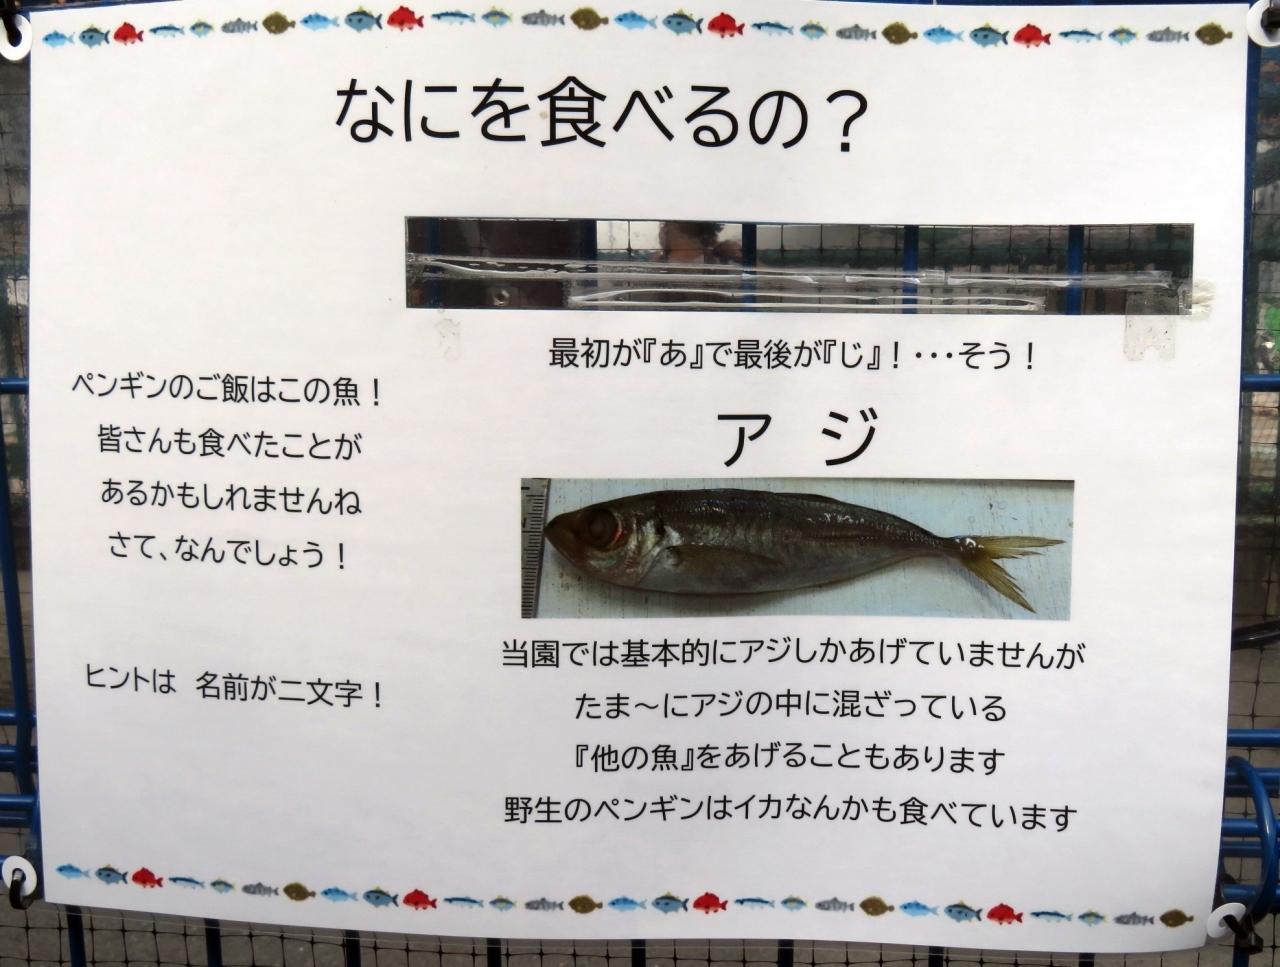 なにを食べるの？
ペンギンのご飯はこの魚！
皆さんも食べたことが
あるかもしれませんね
さて、なんでしょう！
ヒントは 名前が二文字！
最初が『あ』で最後が『じ』！･･･そう！
アジ
当園では基本的にアジしかあげていませんが
たま～にアジの中に混ざっている
『他の魚』をあげることもあります
野生のペンギンはイカなんかも食べています